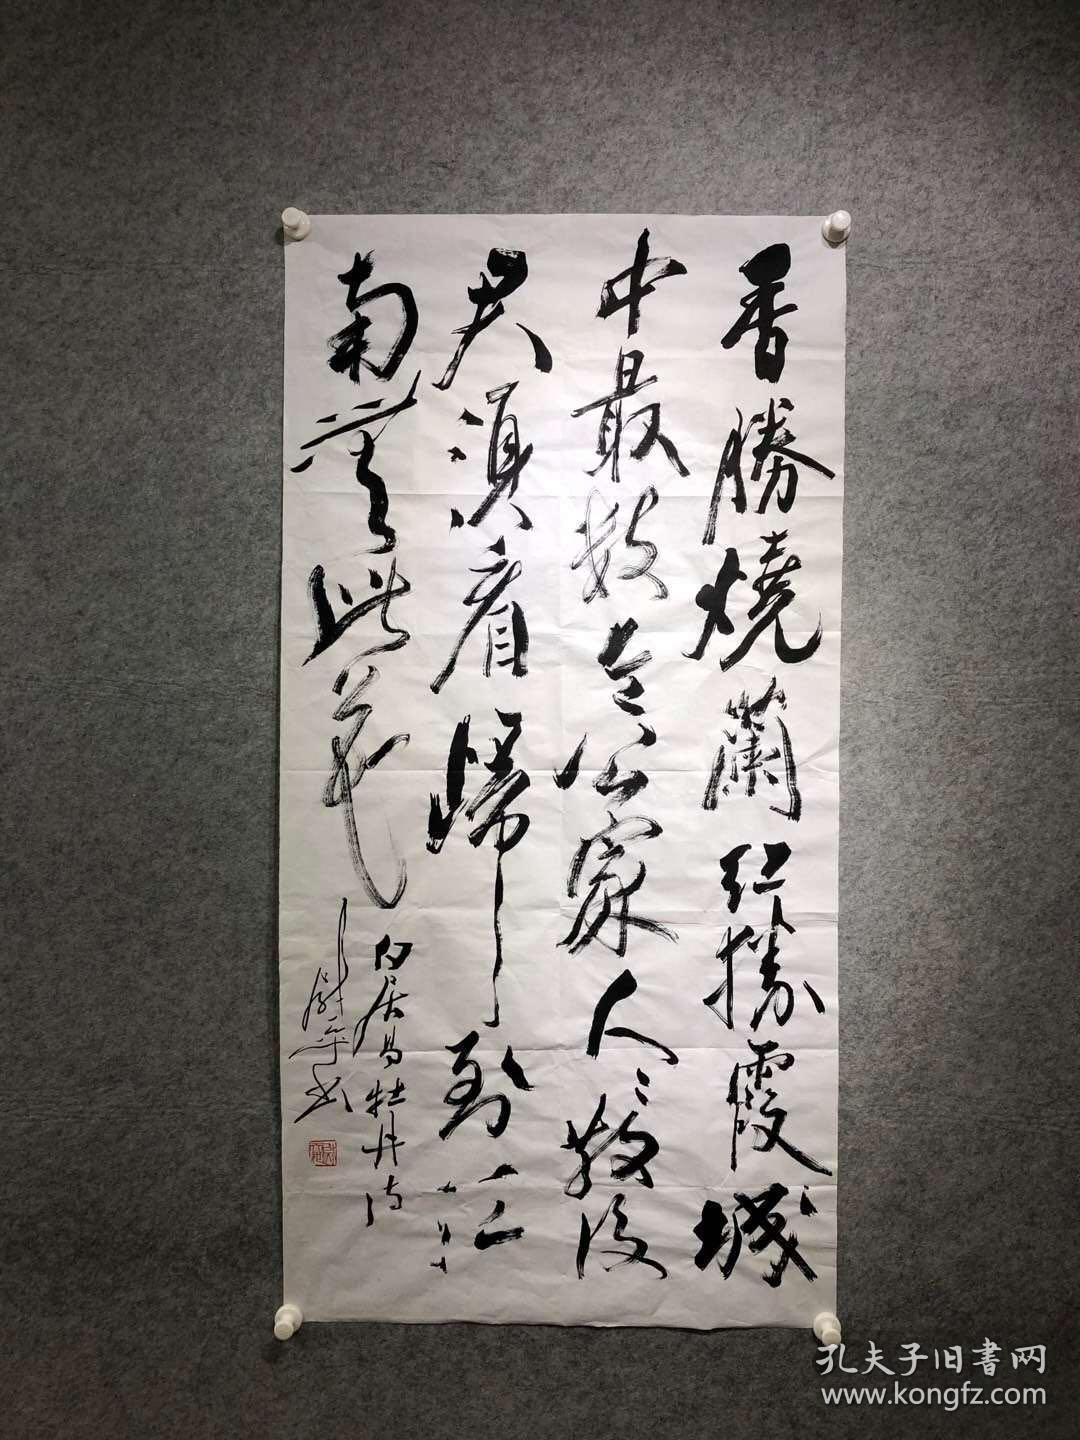 香勝燒蘭紅勝霞城
中最數令公家人〻散後
君須看歸到江
南無此花
白居易牡丹诗
书
孔夫子旧書网
www.kongfz.com